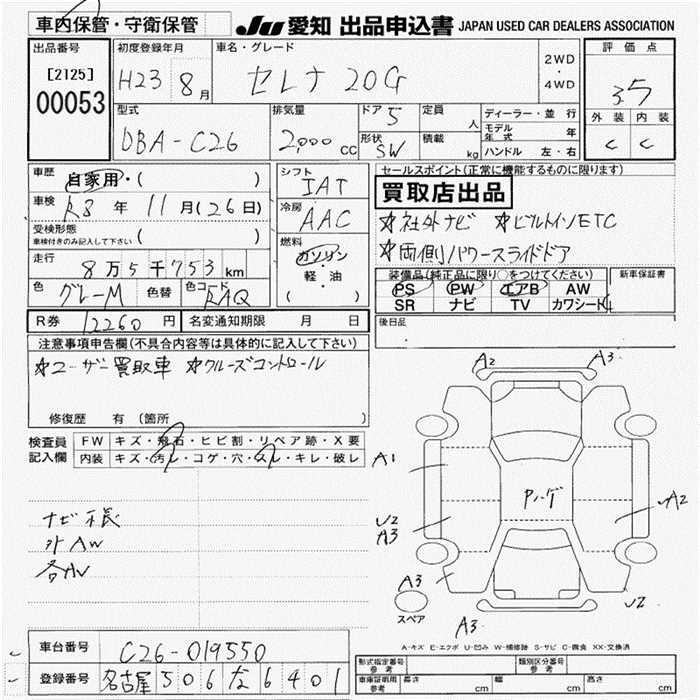 車内保管・守衛保管
JU 愛知 出品申込書 JAPAN USED CAR DEALERS ASSOCIATION
出品番号
[2125]
00053
初度登録年月
H23 8月
車名・グレード
セレナ 20G
2WD
・
4WD
評価点
3.5
外装 内装
C C
型式
DBA-C26
排気量
2,000 cc
ドア 5
形状 SW
定員 人
積載 kg
ディーラー・並行
モデル年式 年
ハンドル 左・右
車歴 自家用・( )
車検 R8年 11月(26日)
受検形態
車検付きのみ記入して下さい ( )
走行
8万5千753km
色 グレーM 色替 色コード KAQ
シフト IAT
冷房 AAC
燃料
ガソリン
・
軽・油
( )
セールスポイント(正常に機能するものに限ります)
買取店出品
☆社外ナビ ☆ビルトインETC
☆両側パワースライドドア
装備品(純正品に限り○をつけてください)
PS PW エアB AW
SR ナビ TV カワシート
新車保証書
R券 12260円 名変通知期限 月 日
後日品
注意事項申告欄(不具合内容等は具体的に記入して下さい)
☆ユーザー買取車 ☆クルーズコントロール
修復歴 有(箇所 )
検査員記入欄
FW キズ・飛石・ヒビ割・リペア跡・X要
内装 キズ・汚レ・コゲ・穴・スレ・キレ・破レ
外AW
A2 A3
A1
U2
A3
A2
A3
スペア
U2
A3
A-キズ E-エクボ U-凹み W-補修跡 S-サビ C-腐食 XX-交換済
車台番号 C26-019550
登録番号 名古屋 506 な 6401
形式指定番号 参考
類別区分番号 参考
車庫証明用 参考 長さ cm 幅 cm 高さ cm